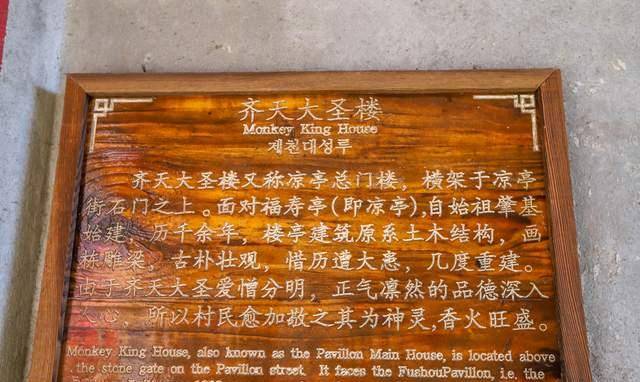 齐天大圣楼
Monkey King House
제천대성루
齐天大圣楼又称凉亭总门楼，横架于凉亭
街石门之上。面对福寿亭(即凉亭),自始祖肇基
始建，历千余年，楼亭建筑原系土木结构，画
栋雕梁，古朴壮观，惜历遭大患，几度重建。
由于齐天大圣爱憎分明，正气凛然的品德深入
人心，所以村民愈加敬之其为神灵,香火旺盛。
Monkey King House, also known as the Pavilion Main House, is located above
the stone gate on the Pavilion street. It faces the FushouPavilion, i.e. the